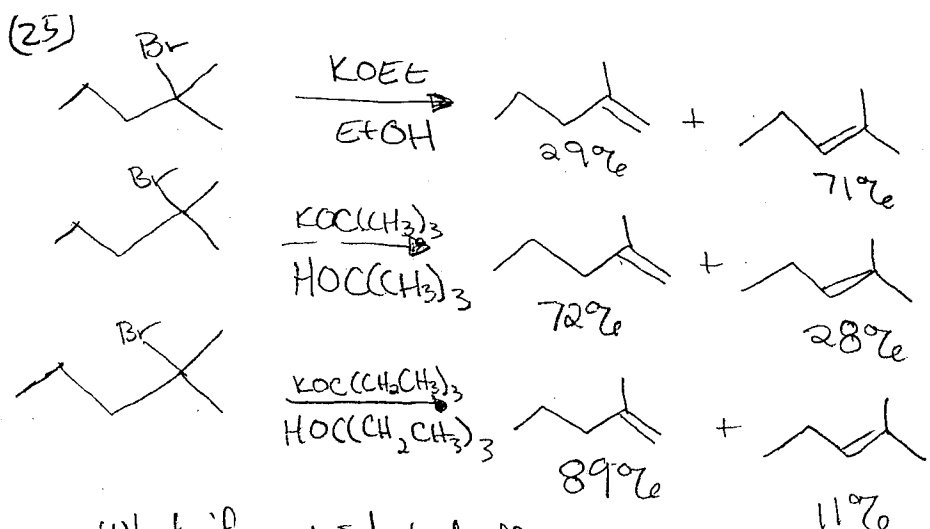 (25)
Br
KOEt
EtOH
+
29%
71%
Br
KOC(CH3)3
HOC(CH3)3
+
72%
28%
Br
KOC(CH2CH3)3
HOC(CH2CH3)3
+
89%
11%